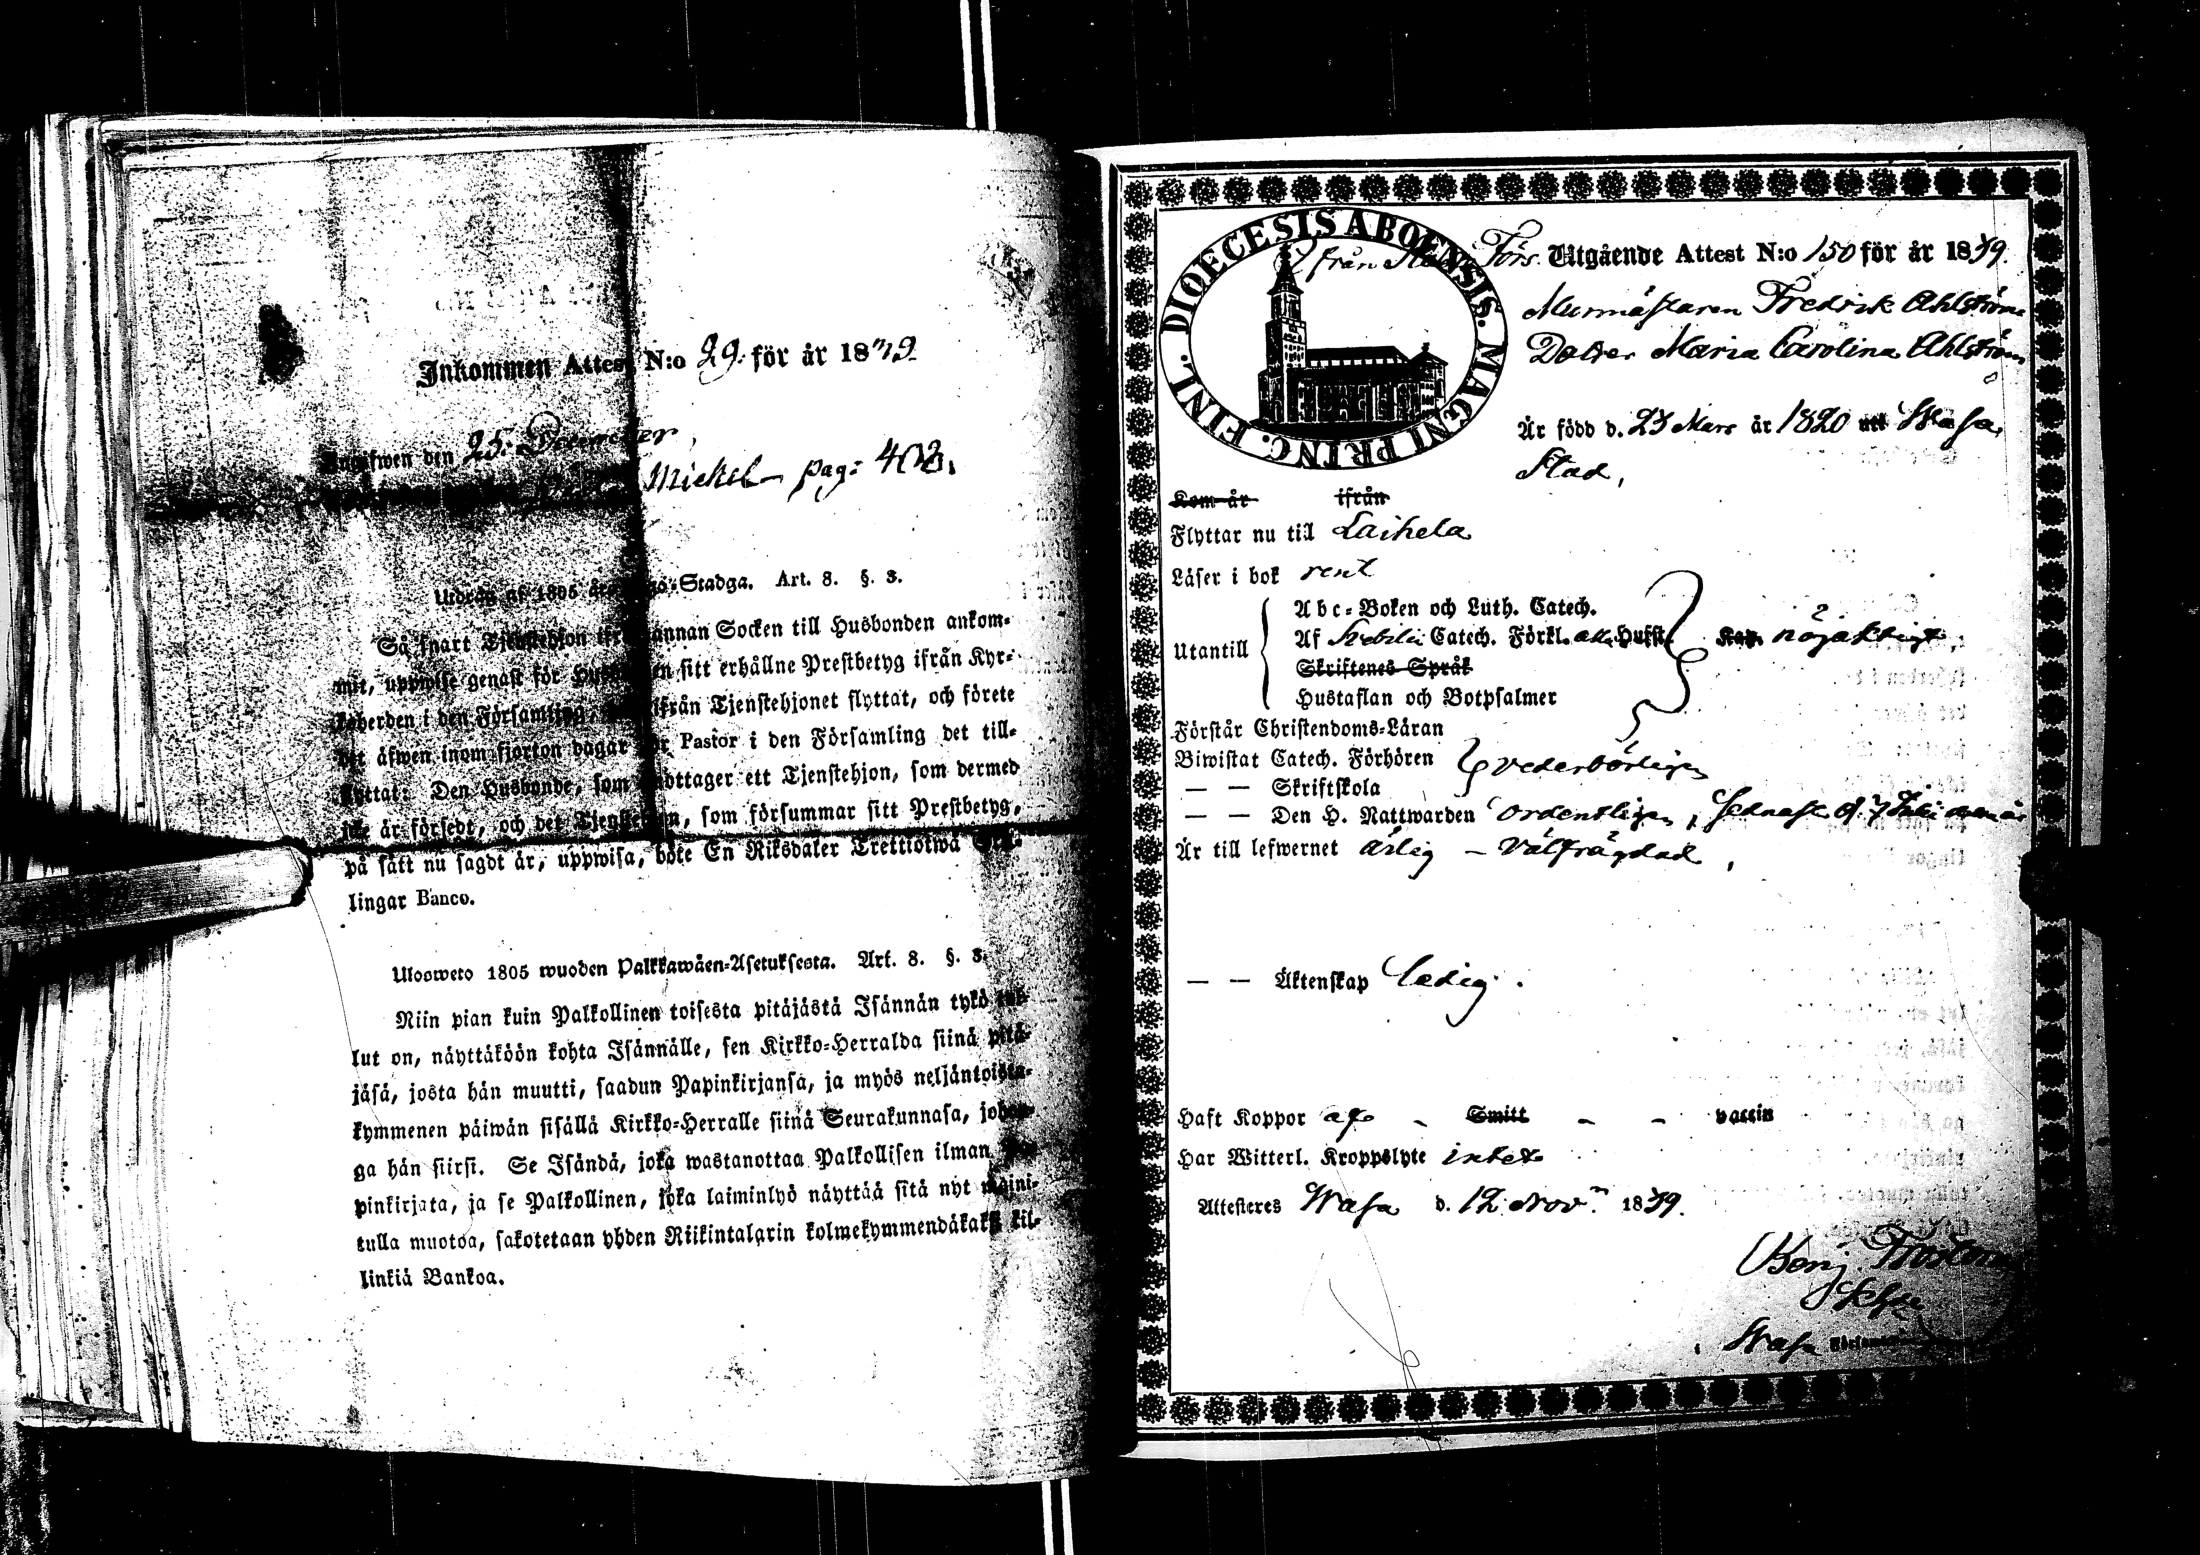 Inkommen Attest N:o 29. för år 18
Angifwen den 25. December
Mickel pag:
Utdrag af 1805 års Lego-Stadga. Art. 8. §. 3.
Så snart Tjenstehjon ifrån annan Socken till Husbonden ankom-
mit, uppwise genast för Husbonden sitt erhållne Prestbetyg ifrån Kyr-
koherden i den Församling, ifrån Tjenstehjonet flyttat, och förete
det äfwen inom fjorton dagar för Pastor i den Församling det till-
flyttat: Den Husbonde, som emottager ett Tjenstehjon, som dermed
icke är försedt, och det Tjenstehjon, som försummar sitt Prestbetyg,
på sätt nu sagdt är, uppwisa, böte En Riksdaler Trettiotwå Skil-
lingar Banco.
Ulosweto 1805 wuoden Palkkawäen-Asetuksesta. Art. 8. §. 3.
Niin pian kuin Palkollinen toisesta pitäjästä Isännän tykö tul-
lut on, näyttäköön kohta Isännälle, sen Kirkko-Herralda siinä pitä-
jäsä, josta hän muutti, saadun Papinkirjansa, ja myös neljäntoista-
kymmenen päiwän sisällä Kirkko-Herralle siinä Seurakunnasa, johon-
ga hän siirsi. Se Isändä, joka wastanottaa Palkollisen ilman Pa-
pinkirjata, ja se Palkollinen, joka laiminlyö näyttää sitä nyt maini-
tulla muotoa, sakotetaan yhden Riikintalarin kolmekymmendäkaksi kil-
linkiä Bankoa.
DIOECESIS ABOENSIS. MAGNI PRINC. FINL.
från Förs. Utgående Attest N:o 150 för år 1839.
Murmästaren Fredrik Ahlströms
Dotter Maria Carolina Ahlström
Är född d. 23 Mars år 1820 uti Wasa
Stad,
Kom år ifrån
Flyttar nu till Laihela
Läser i bok rent
Utantill
Abc-Boken och Luth. Catech.
Af Svebilii Catech. Förkl. alla Hufst. Kap. nöjaktigt
Skriftenes Språk
Hustaflan och Botpsalmer
Förstår Christendoms-Läran
Biwistat Catech. Förhören vederbörligen
— — Skriftskola
— — Den H. Nattwarden ordentligen, sednast d. 7 Juli
Är till lefwernet ärlig – välfrägdad,
— — Äktenskap ledig.
Haft Koppor – Smitt – – vaccin
Har Witterl. Kroppslyte intet
Attesteres Wasa d. 12 Nov. 1839.
Benj.
Wasa